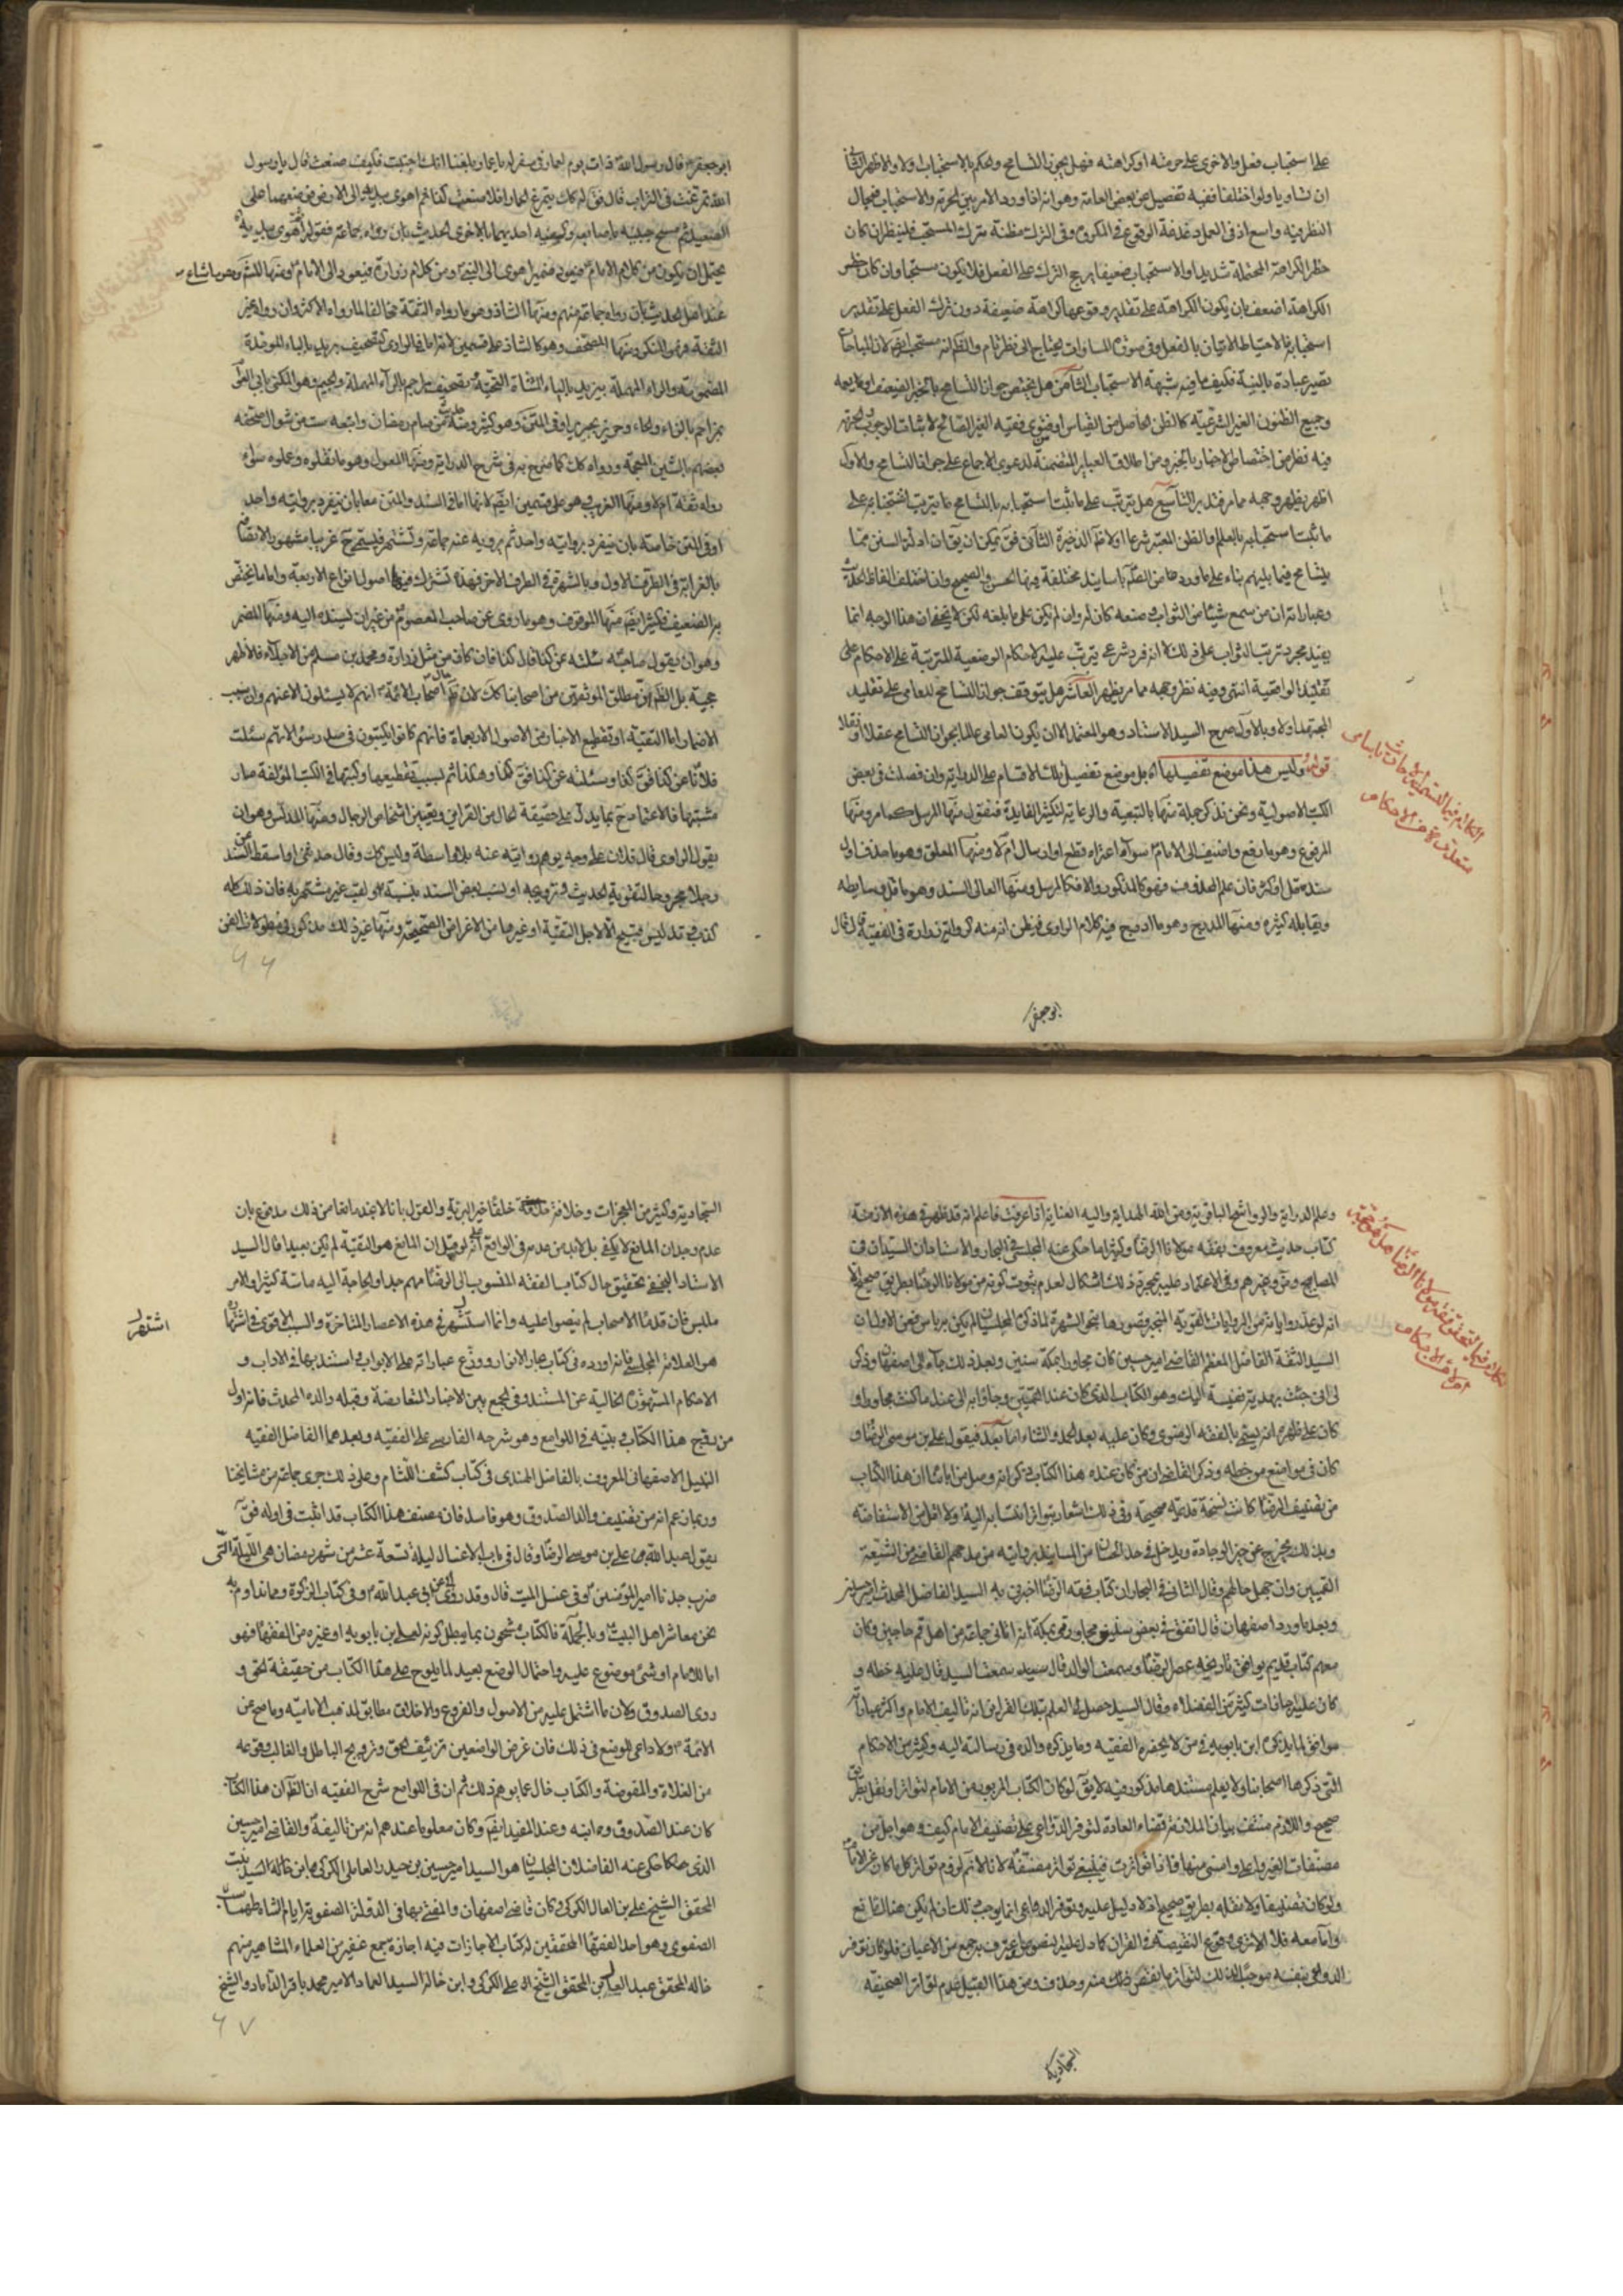 على استحباب فعل والاخرى على حرمته او كراهته فهل يجوز التسامح والحكم بالاستحباب اولا والاظهر الثاني
ان تساويا ولو اختلفا ففيه تفصيل عن بعض العامة وهو انه اذا ورد الامر بين الحرمة والاستحباب مجال
النظر فيه واسع اذ في العمل دغدغة الوقوع في المكروه وفي الترك مظنة ترك المستحب فلينظر ان كان
خطر الكراهة المحتملة شديدا والاستحباب ضعيفا يرجح الترك على الفعل فلا يكون مستحبا وان كان خطر
الكراهة اضعف بان يكون الكراهة على تقدير وقوعها كراهة ضعيفة دون ترك الفعل على تقدير
استحبابه فالاحتياط الاتيان بالفعل وفي صورة المساوات يحتاج الى نظر تام والظاهر انه مستحب ايضا لان المباحات
تصير عبادة بالنية فكيف ما فيه شبهة الاستحباب الثامن هل يختص جواز التسامح بالخبر الضعيف او يعمه
وجميع الظنون الغير الشرعية كالظن الحاصل من القياس او فتوى فقيه الغير الصالح لاثبات الوجوب والحرمة
فيه نظر من اختصاص الاخبار بالخبر ومن اطلاق العباير المتضمنة لدعوى الاجماع على جواز التسامح والاول
اظهر يظهر وجهه مما مر فتدبر التاسع هل يترتب على ما ثبت استحبابه بالتسامح ما يترتب استحبابه على
ما ثبت استحبابه بالعلم والظن المعتبر شرعا او لا ظاهر الذخيرة الثاني فق يمكن ان يقال ان ادلة السنن مما
يتسامح فيما بينهم بناء على ما ورد عن الصادق باسانيد مختلفة فيها الحسن والصحيح وان اختلف الفاظ الحديث
وعباراته ان من سمع شيئا من الثواب فصنعه كان له وان لم يكن على ما بلغه لكن لا يخفى ان هذا الوجه انما
يفيد مجرد ترتب الثواب على ذلك لا انه فرد شرعي يترتب عليه الاحكام الوضعية المترتبة على الاحكام على
تقليد الواقعية انتهى وفيه نظر وجهه مما مر يظهر العاشر هل يتوقف جواز التسامح للعامي على تقليد
المجتهد اولا وبالاول صرح السيد الاستاد وهو المعتمد الا ان يكون العامي عالما بجواز التسامح عقلا او نقلا
قوله وليس هذا موضع تفصيلها اه بل موضع تفصيل تلك الاقسام علم الدراية وان فصلت في بعض
الكتب الاصولية ونحن نذكر جملة منها بالتبعية والرعاية لتكثير الفايدة فنقول منها المرسل كما مر ومنها
المرفوع وهو ما رفع واضيف الى الامام سواء اعتراه قطع او ارسال ام لا ومنها المعلق وهو ما حذف اول
سنده قل او كثر فان علم المحذوف فهو كالمذكور والا فكالمرسل ومنها العالي السند وهو ما قل وسايطه
ويقابله كثيره ومنها المدرج وهو ما ادرج فيه كلام الراوي فيظن انه منه كرواية زرارة في الفقيه قال قال
الكلام فيما يتعلق
متعلق الاحكام
ابو جعفر
ابو جعفر قال رسول الله ذات يوم لعمار في سفر له يا عمار بلغنا انك اجنبت فكيف صنعت قال يا رسول
الله تمرغت في التراب قال فق له كك يتمرغ الحمار افلا صنعت كذا ثم اهوى بيديه الى الارض فوضعهما على
الصعيد ثم مسح جبينيه باصابعه وكفيه احديهما بالاخرى الحديث بان رواه جماعة فقوله ثم اهوى بيديه
يحتمل ان يكون من كلام الامام فيعود ضمير اهوى الى النبي ومن كلام زرارة فيعود الى الامام ومنها المشهور وهو ما شاع
عند اهل الحديث بان رواه جماعة منهم ومنها الشاذ وهو ما رواه الثقة مخالفا لما رواه الاكثر وان رواه غير
الثقة فهو المنكر ومنها المصحف وهو كالشاذ على قسمين لانه اما في الراوي كتصحيف بريد بالباء الموحدة
المضمومة والراء المهملة بيزيد بالياء المثناة التحتية وتصحيف مراجم بالراء المهملة والجيم وهو المكنى بابي العوام
بمزاحم بالزاء والحاء وحريز بجرير او في المتن وهو كثير ومنه حديث من صام رمضان واتبعه ست من شوال صحفه
بعضهم بالشين المعجمة ورواه كك كما صرح به في شرح الدراية ومنها المعول وهو ما نقلوه وعملوه سواء
رواه ثقة ام لا ومنها الغريب وهو على قسمين ايضا لانها اما في السند والمتن معا بان يتفرد بروايته واحد
او في المتن خاصة بان يتفرد بروايته واحد ثم يرويه عنه جماعة وتشتهر فيستمى ح غريبا مشهورا لاتصافه
بالغرابة في الطرف الاول وبالشهرة في الطرف الاخر فهذا تشترك فيها اصول انواع الاربعة واما ما يختص
بالضعيف فكثير ايضا منها الموقوف وهو ما روى عن صاحب المعصوم من غير ان يسنده اليه ومنها المضمر
وهو ان يقول صاحبه سئلته عن كذا قال كذا فان كان من مثل زرارة ومحمد بن مسلم من الاجلاء فالاظهر
حجيته بل الظاهر ان مطلق الموثقين من اصحابنا كك لان ظاهر حال اصحاب الائمة انهم لا يسئلون الا عنهم وان سبب
الاضمار اما التقية او تقطيع الاخبار من الاصول الاربعماة فانهم كانوا يكتبون في صدر سؤالاتهم سئلت
فلانا عن كذا فق كذا وسئلته عن كذا فق كذا وهكذا ثم لسبب تقطيعها وكتبها في الكتب المؤلفة صار
مشتبها فالاعتماد ح بما يدل على حقيقة الحال من القراين وتعيين اشخاص الرجال ومنها المدلس وهو ان
يقول الراوي قال فلان على وجه يوهم روايته عنه بلا واسطة وليس كك وقال حدثني او اسقط من السند
رجلا مجروحا لتقوية الحديث وترويجه او نسب بعض السند بلقب غير مشتهر به فان ذلك كله
كذب وتدليس قبيح الا لاجل التقية او غيرها من الاغراض الصحيحة ومنها غير ذلك مذكور في مطولات الفن
٦٦
وعلم الدراية والرواشح الباقية ومن الله الهداية واليه العناية اذا عرفت فاعلم انه قد ظهر في هذه الازمنة
كتاب حديث معروف بفقه مولانا الرضا وكثيرا ما حكى عنه المجلسي في البحار والاستادان السيدان في
المصابيح وغيرهم وفي الاعتماد عليه بمجرد ذلك اشكال لعدم ثبوت كونه من مولانا الرضا بطريق صحيح الا
انه لو عد رواياته من الروايات القوية المنجبر قصورها بنحو الشهرة لما ذكره المجلسيان لم يكن به باس فعن الاول ان
السيد الثقة الفاضل المعظم القاضي امير حسين كان مجاورا بمكة سنين وبعد ذلك جاء الى اصفهان وذكر
لي اني جئت بهدية نفيسة اليك وهو الكتاب الذي كان عند القميين وجاؤا به الى عند ما كنت مجاورا و
كان على ظهره انه يسمى بالفقه الرضوي وكان عليه بعد الحمد والثناء اما بعد فيقول علي بن موسى الرضا و
كان في مواضع من خطه وذكر القاضي ان من كان عنده هذا الكتاب ذكر انه وصل من ابائنا ان هذا الكتاب
من تصنيف الرضا كانت نسخة قديمة صحيحة وفي ذلك اشعار بتواتر انتسابه اليه ولا اقل من الاستفاضة
وبذلك يخرج عن حيز الوجادة ويدخل في حد الحسان من المسانيد بروايته من مدحهم القاضي من الشيعة
القميين وان جهل حالهم وقال الثاني في البحار ان كتاب فقه الرضا اخبرني به السيد الفاضل المحدث امير حسين
وبعد ما ورد اصفهان قال اتفق في بعض سني مجاورتي بمكة انه اتاني جماعة من اهل قم حاجين وكان
معهم كتاب قديم يوافق تاريخه عصر الرضا وسمعت الوالد قال سمعت السيد قال عليه خطه و
كان عليه اجازات كثيرة من الفضلاء وقال السيد حصل لي العلم بتلك القراين انه تاليف الامام واكثر عباراته
موافق لما يذكره ابن بابويه في من لا يحضره الفقيه وما يذكره والده في رسالته اليه وكثير من الاحكام
التي ذكرها اصحابنا ولا يعلم مستندها مذكور فيه لا يق لو كان الكتاب المزبور من الامام لتواتر او نقل بطريق
صحيح واللازم منتف بيان الملازمة قضاء العادة لتوفر الدواعي على تصنيف الامام كيف وهو اجل من
مصنفات الغير واعلى واسنى منها فاذا تواترت فينبغي تواتر مصنفه لانا لا نم لزوم تواتر كل ما كان عن الامام
ولو كان تصنيفا ولا نقله بطريق صحيح اذ لا دليل عليه وتوفر الدواعي انما يوجب ذلك ان لم يكن هناك مانع
واما معه فلا الا ترى وقوع النقيصة في القران كما دل عليه النصوص واعترف به جمع من الاعيان فلو كان توفر
الدواعي بنفسه موجبا لذلك لتواتر ما نقص منه وحذف ومن هذا القبيل عدم تواتر الصحيفة
السجادية
السجادية وكثير من المعجزات وخلافة خليفة خلفا خير البرية والقول بانا لا نجد مانعا من ذلك مدفوع بان
عدم وجدان المانع لا يكفي بل لابد من عدمه في الواقع لو قيل ان المانع هو التقية لم يكن بعيدا قال السيد
الاستاد النجفي تحقيق حال كتاب الفقه المنسوب الى الرضا مهم جدا والحاجة اليه ماسة كثيرا والامر
ملبس فان قدماء الاصحاب لم ينصوا عليه وانما استشهر في هذه الاعصار المتاخرة والسبب الاقوى في اشتهاره
هو العلامة المجلسي فانه اورده في كتاب بحار الانوار ووزع عباراته على الابواب واستند بها في الاداب و
الاحكام المشهورة الخالية عن المستند وفي الجمع بين الاخبار المتعارضة وقبله والده المحدث فانه اول
من روج هذا الكتاب وبينه في اللوامع وهو شرحه الفارسي على الفقيه وبعدهما الفاضل الفقيه
النبيل الاصفهاني المعروف بالفاضل الهندي في كتاب كشف اللثام وعلى ذلك جرى جماعة من مشايخنا
وربما زعم انه من تصنيف والد الصدوق وهو فاسد فان مصنف هذا الكتاب قد اثبت في اوله فق
يقول عبد الله علي بن موسى الرضا وقال في باب الاغسال ليلة تسعة عشر من شهر رمضان هي الليلة التي
ضرب جدنا امير المؤمنين وفي غسل الميت قال وقد روى ابي عن ابي عبد الله وفي كتاب الزكوة ومما نداوم به
نحن معاشر اهل البيت وبالجملة فالكتاب مشحون بما يبطل كونه لعلي بن بابويه او غيره من الفقهاء فهو
اما للامام او شئ موضوع عليه واحتمال الوضع بعيد لما يلوح على هذا الكتاب من حقيقة الحق و
روى الصدوق ولان ما اشتمل عليه من الاصول والفروع والاخلاق مطابق لمذهب الامامية وما صح عن
الائمة ولا داعي للوضع في ذلك فان غرض الواضعين تزييف الحق وترويج الباطل والغالب وقوعه
من الغلاة والمفوضة والكتاب خال عما يوهم ذلك ثم ان في اللوامع شرح الفقيه ان الظاهر ان هذا الكتاب
كان عند الصدوق وابيه وعند المفيد ايضا وكان معلوما عندهم انه من تاليفه والقاضي امير حسين
الذي حكى عنه الفاضلان المجلسيان هو السيد امير حسين بن حيدر العاملي الكركي ابن خالة السيد بنت
المحقق الشيخ علي بن العال الكركي كان قاضي اصفهان والمفتي بها في الدولة الصفوية ايام الشاه طهماسب
الصفوي وهو احد الفقهاء المحققين له كتاب الاجازات فيه اجازة جمع غفير من العلماء المشاهير منهم
خاله المحقق عبد العالي بن المحقق الشيخ علي الكركي وابن خالة السيد العماد الامير محمد باقر الداماد والشيخ
اشتهر
٦٧